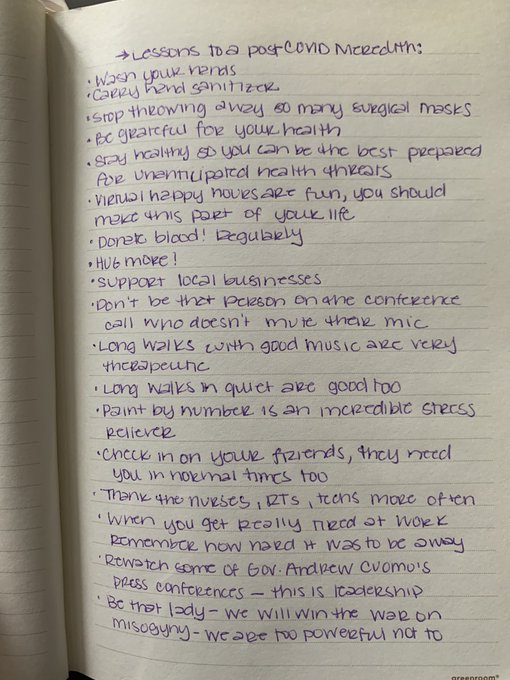 → Lessons to a post COVID Meredith:
• Wash your hands
• Carry hand sanitizer
• Stop throwing away so many surgical masks
• Be grateful for your health
• Stay healthy so you can be the best prepared
for unanticipated health threats
• Virtual happy hours are fun, you should
make this part of your life
• Donate blood! Regularly
• Hug more!
• Support local businesses
• Don't be that person on the conference
call who doesn't mute their mic
• Long walks with good music are very
therapeutic
• Long walks in quiet are good too
• Paint by number is an incredible stress
reliever
• Check in on your friends, they need
you in normal times too
• Thank the nurses, RTs, techs more often
• When you get really tired at work
remember how hard it was to be away
• Rewatch some of Gov. Andrew Cuomo's
press conferences – this is leadership
• Be that lady – we will win the war on
misogyny – we are too powerful not to
greenroom®